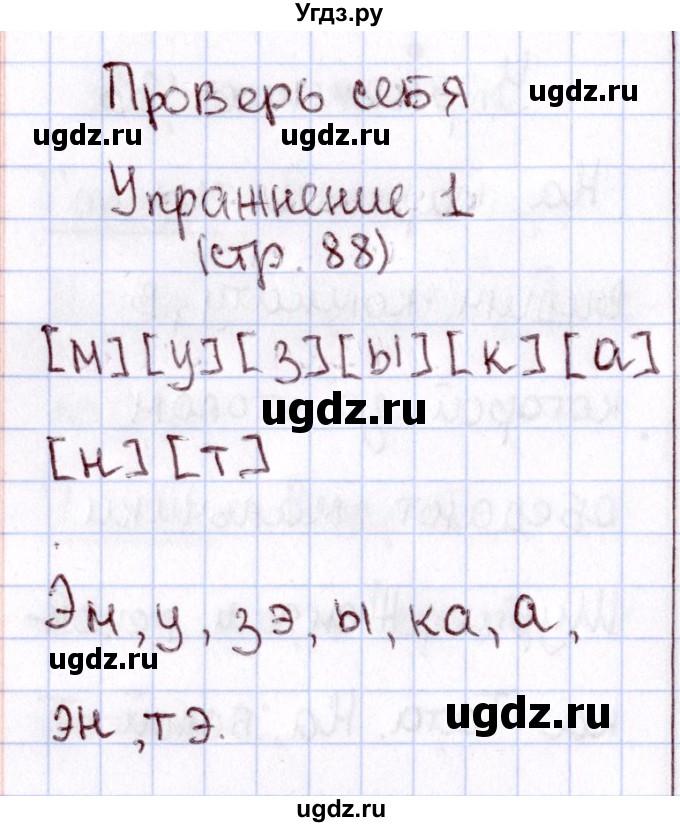 Угдз.ру
Проверь себя
ugdz.ru
ugdz.ru ugdz.ru
Упражнение 1
(стр. 88)
[м] [у] [з] [ы] [к] [а]
ugdz.ru
[н] [т]
Эм, у, зэ, ы, ка, а,
ugdz.ru
эн, тэ.
ugdz.ru
ugdz.ru